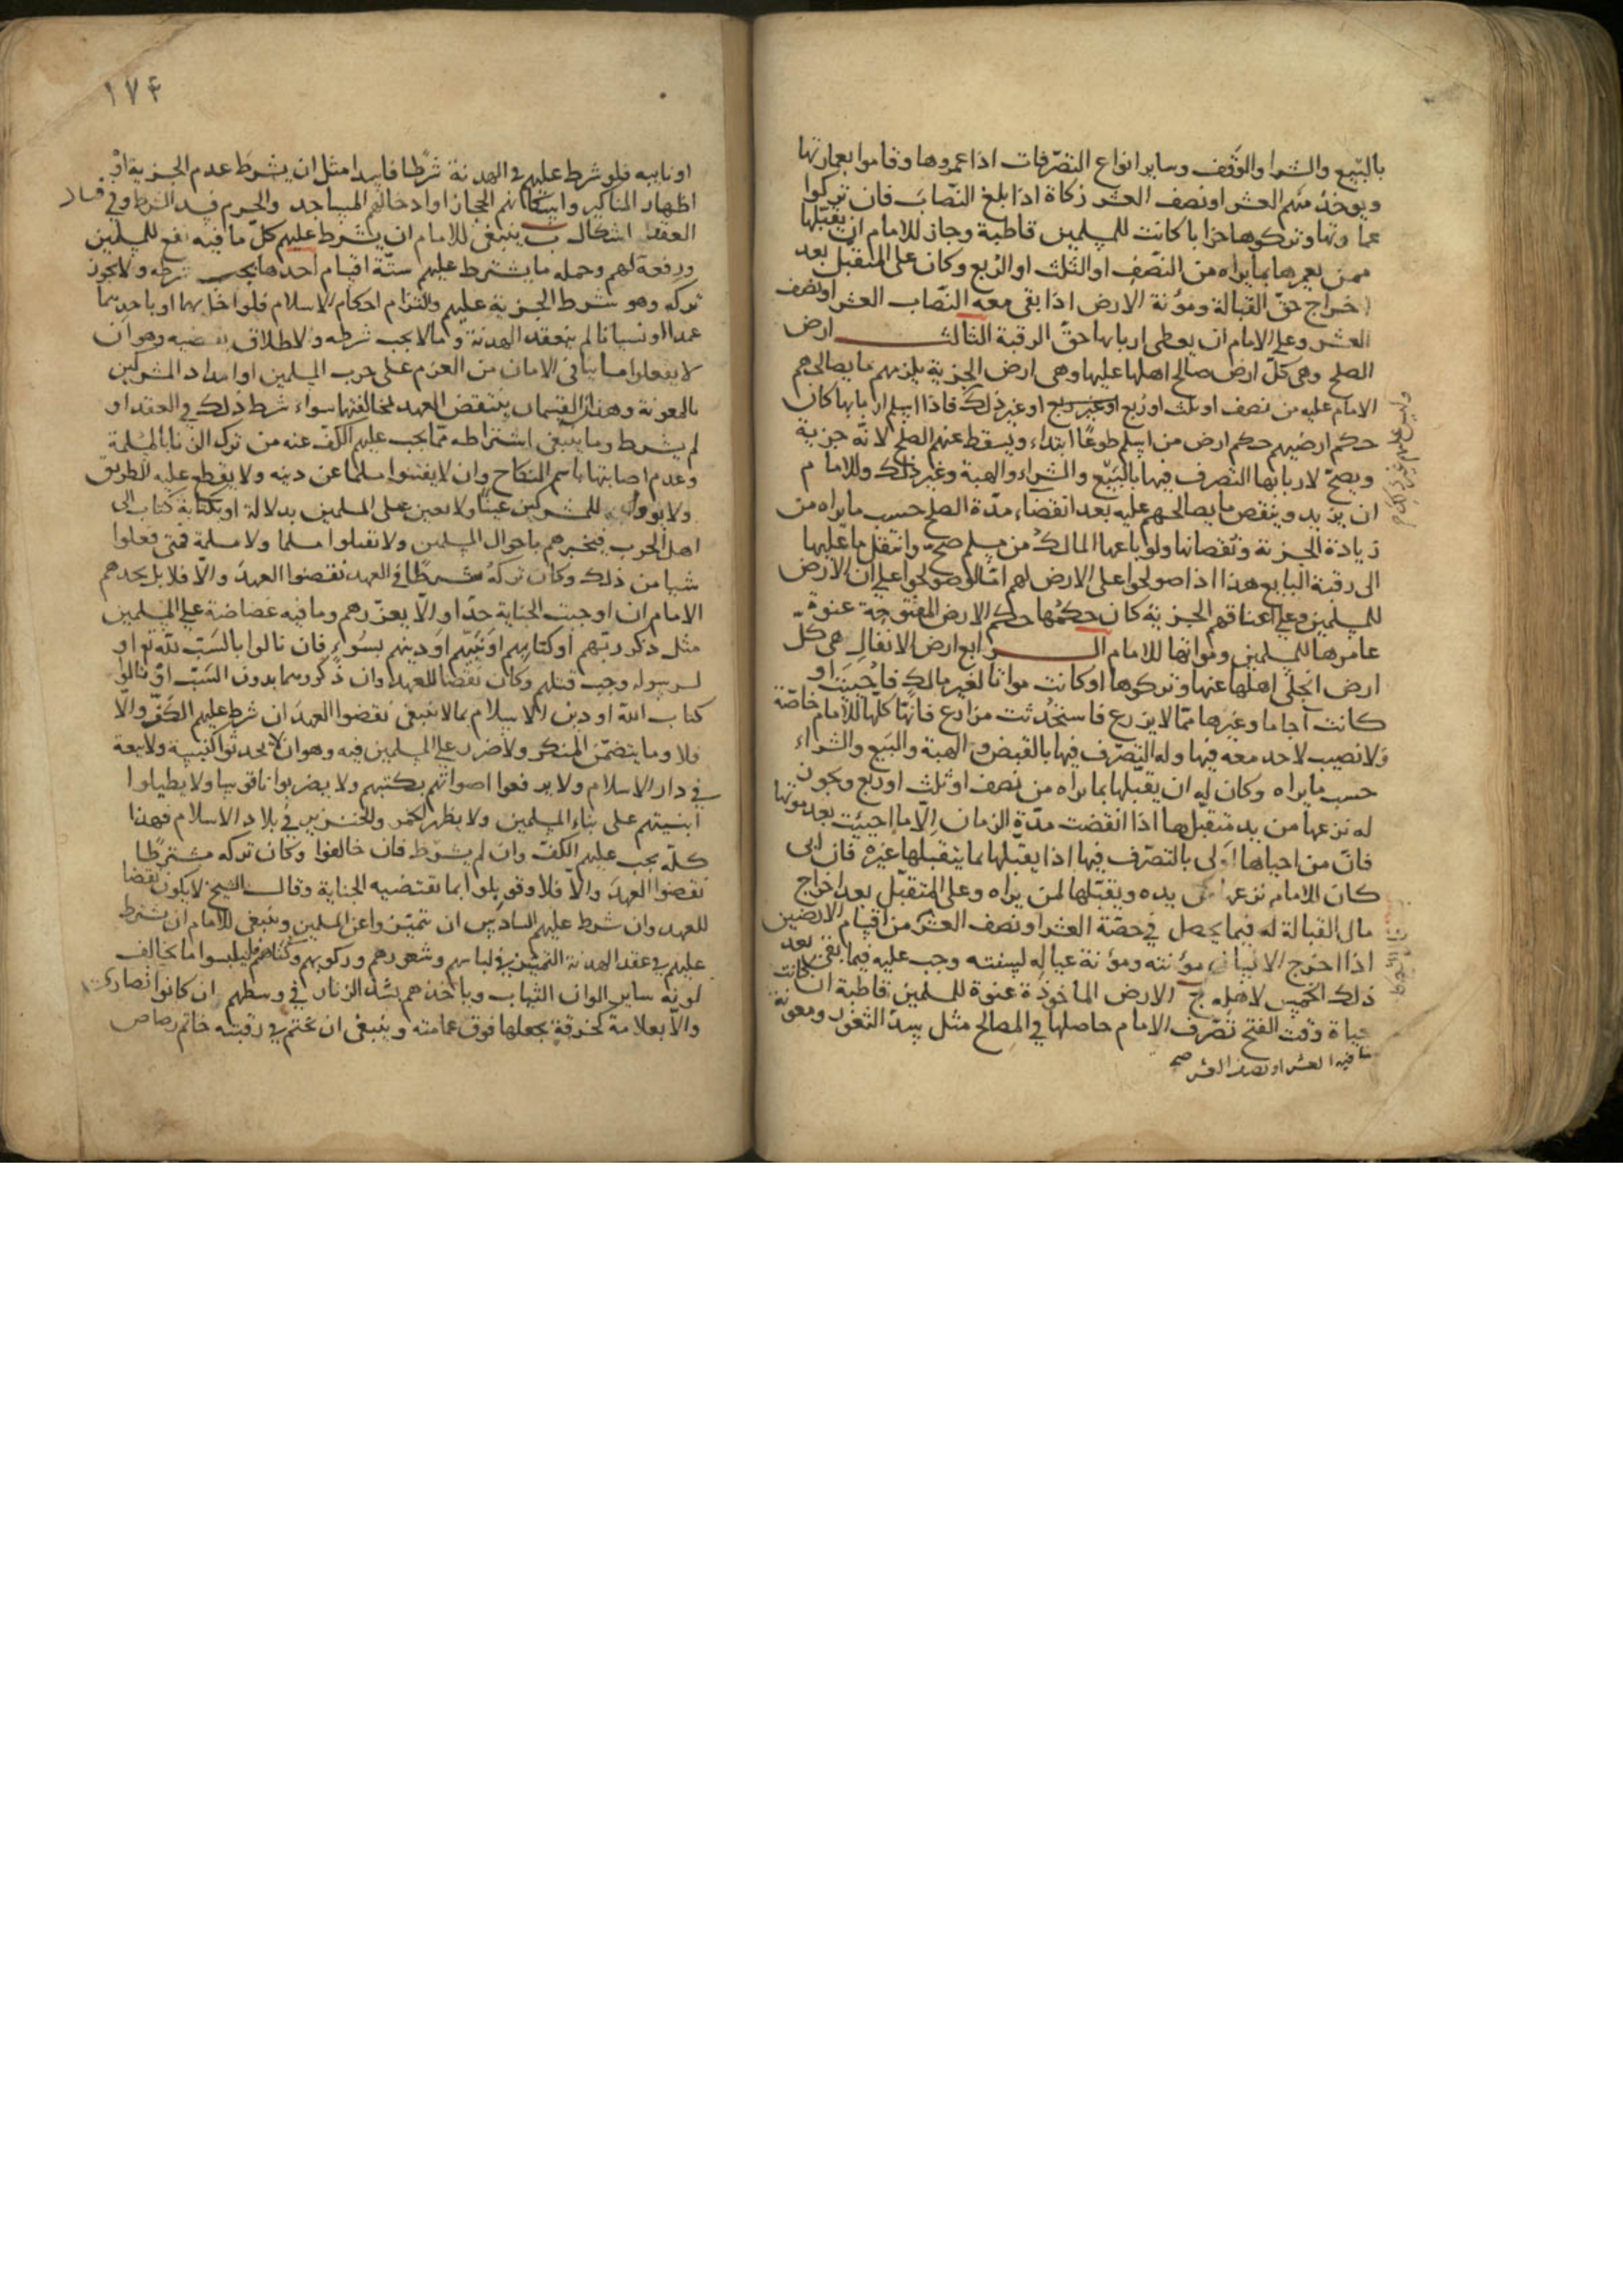 بالبيع والشرا والوقف وساير انواع التصرفات اذا عمروها وقاموا بعمارتها
ويوخذ منهم العشر او نصف العشر زكاة اذا بلغ النصاب فان تركوا
عمارتها وتركوها خرابا كانت للمسلمين قاطبة وجاز للامام ان يقبلها
ممن يعمرها بما يراه من النصف او الثلث او الربع وكان على المتقبل بعد
اخراج حق القبالة ومؤنة الارض اذا بقى معه النصاب العشر او نصف
العشر وعلى الامام ان يعطى اربابها حق الرقبة الثالث ارض
الصلح وهى كل ارض صالح اهلها عليها وهى ارض الجزية يلزمهم ما يصالحهم
الامام عليه من نصف او ثلث او ربع او غير ربع او غير ذلك فاذا اسلم اربابها كان
حكم ارضيهم حكم ارض من اسلم طوعا ابتداء ويسقط عنهم الصلح لانه جزية
ويصح لاربابها التصرف فيها بالبيع والشراء والهبة وغير ذلك وللامام
ان يزيد وينقص ما يصالحهم عليه بعد انقضاء مدة الصلح حسب ما يراه من
زيادة الجزية ونقصانها ولو باعها المالك من مسلم صح وانتقل ما عليها
الى رقبة البايع هذا اذا صولحوا على ان الارض لهم اما لو صولحوا على ان الارض
للمسلمين وعلى اعناقهم الجزية كان حكمها حكم الارض المفتوحة عنوة
عامرها للمسلمين ومواتها للامام الرابع ارض الانفال هى كل
ارض انجلى اهلها عنها وتركوها او كانت مواتا لغير مالك فاحييت او
كانت آجاما وغيرها مما لا يزرع فاستحدثت مزارع فانها كلها للامام خاصة
ولا نصيب لاحد معه فيها وله التصرف فيها بالقبض والهبة والبيع والشراء
حسب ما يراه وكان له ان يقبلها بما يراه من نصف او ثلث او ربع ويجوز
له نزعها من يد متقبلها اذا انقضت مدة الزمان الا ما احييت بعد موتها
فان من احياها اولى بالتصرف فيها اذا يقبلها بما يتقبلها غيره فان ابى
كان للامام نزعها من يده ويقبلها لمن يراه وعلى المتقبل بعد اخراج
مال القبالة له فيما يحصل فى حصة العشر او نصف العشر من اقسام الارضين
اذا اخرج الانسان مؤنته ومؤنة عياله لسنته وجب عليه فيما بقى بعد
ذلك الخمس لاهله ج الارض الماخوذة عنوة للمسلمين قاطبة ان كانت
حياة وقت الفتح تصرف الامام حاصلها فى المصالح مثل سد الثغور ومعونة
فيه العشر او نصف العشر صح
١٧٤
او نايبه فلو شرط عليهم فى الهدنة شرطا فاسدا مثل ان يشرط عدم الجزية او
اظهار المناكير واسكانهم الحجاز او ادخالهم المساجد والحرم فسد الشرط وفى فساد
العقد اشكال ب ينبغى للامام ان يشرط عليهم كل ما فيه نفع للمسلمين
ورفعة لهم وجمله ما يشترط عليهم ستة اقسام احدها يجب شرطه ولا يجوز
تركه وهو شرط الجزية عليهم والتزام احكام الاسلام فلو اخل بهما او باحديهما
عمدا او نسيانا لم ينعقد الهدنة وما لا يجب شرطه والاطلاق يقتضيه وهو ان
لا يفعلوا ما ينافى الامان من العزم على حرب المسلمين او امداد المشركين
بالمعونة وهذان القسمان ينتقض العهد لمخالفتها سواء شرط ذلك فى العقد او
لم يشرط وما ينبغى اشتراطه مما يجب عليهم الكف عنه من ترك الزنا بالمسلمة
وعدم اصابتها باسم النكاح وان لا يفتنوا مسلما عن دينه ولا يقطع عليه الطريق
ولا يؤوى للمشركين عينا ولا يعين على المسلمين بدلالة او بكتابة كتاب الى
اهل الحرب فيخبرهم باحوال المسلمين ولا يقتلوا مسلما ولا مسلمة فمتى فعلوا
شيا من ذلك وكان تركه شرطا فى العهد نقضوا العهد والا فلا بل يحدهم
الامام ان اوجبت الجناية حدا والا يعزرهم وما فيه غضاضة على المسلمين
مثل ذكر ربهم او كتابهم او نبيهم او دينهم بسوء فان نالوا بالسب لله تع او
لرسوله وجب قتلهم وكان نقضا للعهد وان ذكروهما بدون السب او نالوا
كتاب الله او دين الاسلام بما لا ينبغى نقضوا العهد ان شرط عليهم الكف والا
فلا وما يتضمن المنكر ولا ضرر على المسلمين فيه وهو ان لا يحدثوا كنيسة ولا بيعة
فى دار الاسلام ولا يرفعوا اصواتهم بكتبهم ولا يضربوا ناقوسا ولا يطيلوا
ابنيتهم على بناء المسلمين ولا يظهر الخمر والخنزير فى بلاد الاسلام فهذا
كله يجب عليهم الكف وان لم يشرط فان خالفوا وكان تركه مشترطا
نقضوا العهد والا فلا وقوبلوا بما تقتضيه الجناية وقال الشيخ لا يكون نقضا
للعهد وان شرط عليهم السادس ان تميزوا عن المسلمين وينبغى للامام ان يشترط
عليهم فى عقد الهدنة التميز فى لباسهم وشعورهم وركوبهم وكناهم فليلبسوا ما يخالف
لونه ساير الوان الثياب وياخذهم بشد الزنار فى وسطهم ان كانوا نصارى
والا بعلامة كخرقة يجعلها فوق عمامته وينبغى ان يختم فى رقبته خاتم رصاص